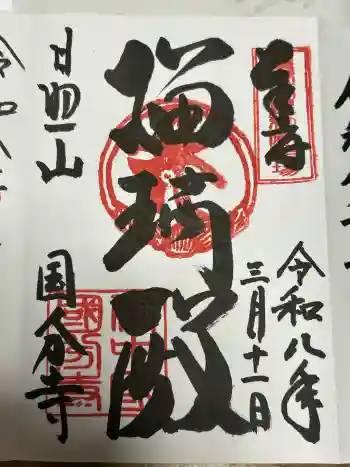 奉拝
令和八年
三月十一日
瑠璃殿
日照山
国分寺